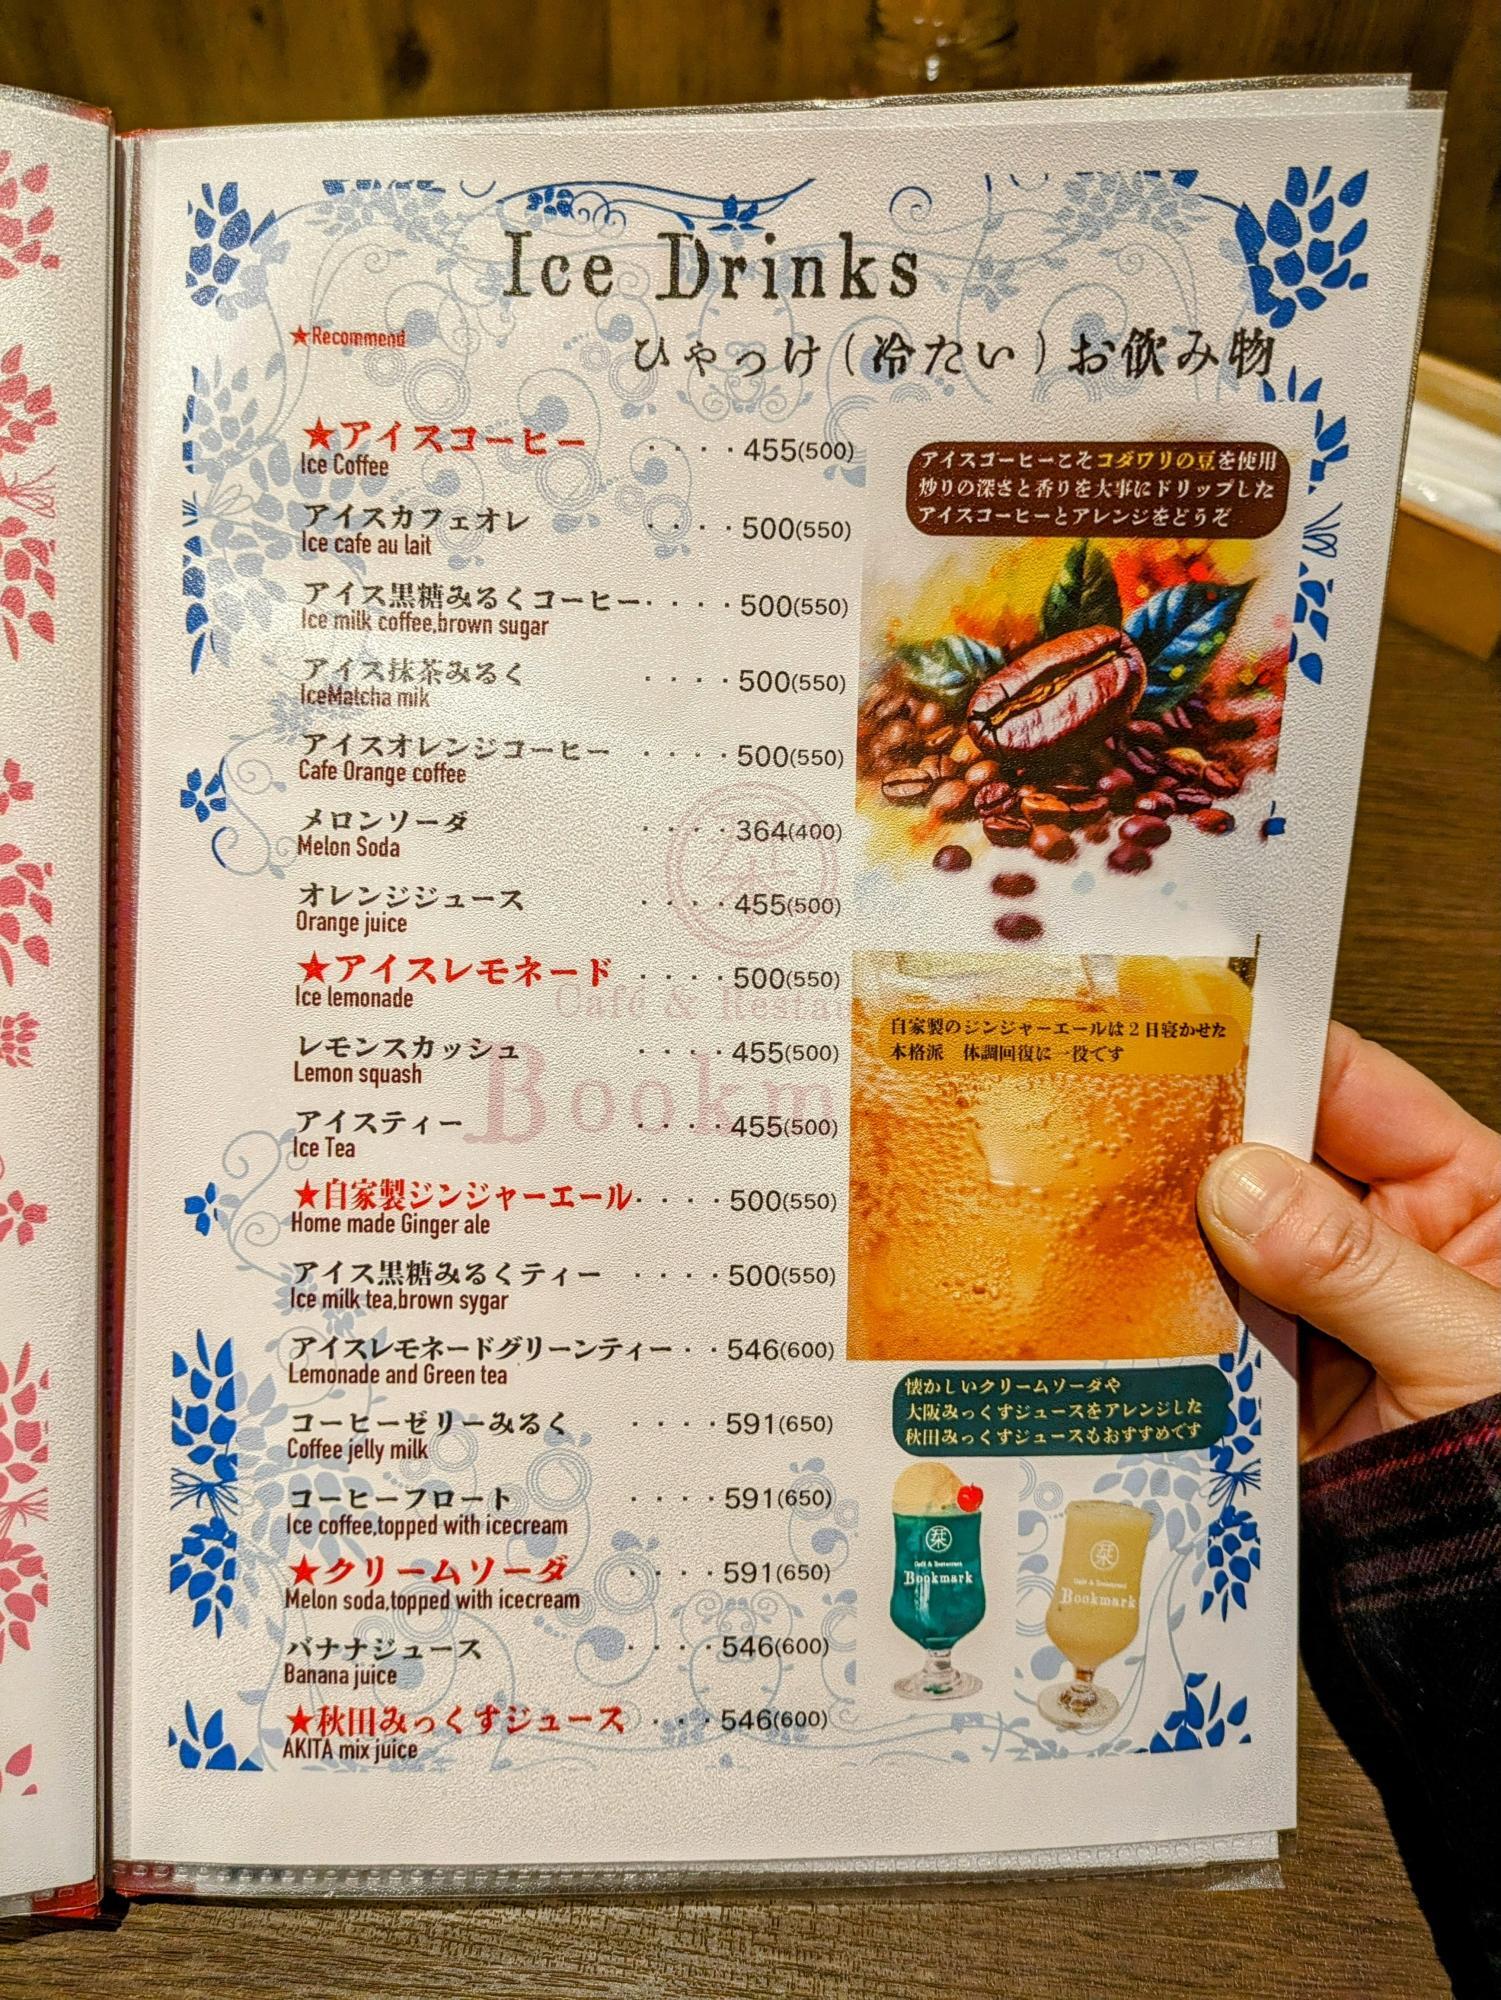 Ice Drinks
★Recommend
ひゃっけ（冷たい）お飲み物
★アイスコーヒー ････455(500)
Ice Coffee
アイスカフェオレ ････500(550)
Ice cafe au lait
アイス黒糖みるくコーヒー････500(550)
Ice milk coffee,brown sugar
アイス抹茶みるく ････500(550)
IceMatcha mik
アイスオレンジコーヒー ････500(550)
Cafe Orange coffee
メロンソーダ ････364(400)
Melon Soda
オレンジジュース ････455(500)
Orange juice
★アイスレモネード ････500(550)
Ice lemonade
レモンスカッシュ ････455(500)
Lemon squash
アイスティー ････455(500)
Ice Tea
★自家製ジンジャーエール････500(550)
Home made Ginger ale
アイス黒糖みるくティー ････500(550)
Ice milk tea,brown sygar
アイスレモネードグリーンティー･･546(600)
Lemonade and Green tea
コーヒーゼリーみるく ････591(650)
Coffee jelly milk
コーヒーフロート ････591(650)
Ice coffee,topped with icecream
★クリームソーダ ････591(650)
Melon soda,topped with icecream
バナナジュース ････546(600)
Banana juice
★秋田みっくすジュース ･･･546(600)
AKITA mix juice
アイスコーヒーこそコダワリの豆を使用
炒りの深さと香りを大事にドリップした
アイスコーヒーとアレンジをどうぞ
栞
Café & Resta
Bookm
自家製のジンジャーエールは2日寝かせた
本格派　体調回復に一役です
懐かしいクリームソーダや
大阪みっくすジュースをアレンジした
秋田みっくすジュースもおすすめです
栞
Café & Restaurant
Bookmark
栞
Café & Restaurant
Bookmark